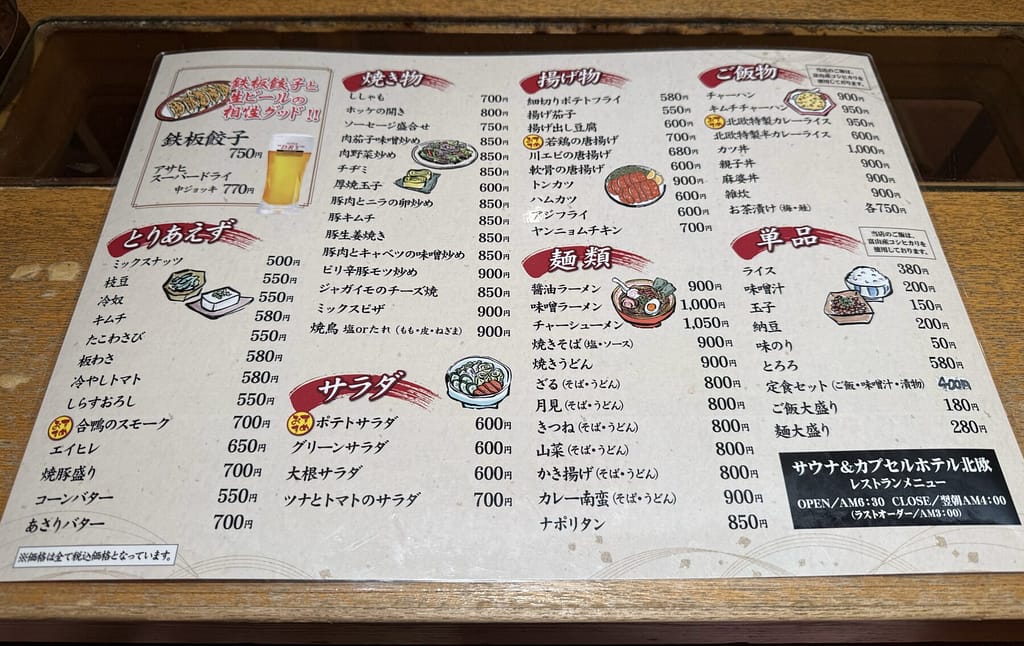 鉄板餃子と
生ビールの
相性グッド!!
鉄板餃子
750円
アサヒ
スーパードライ
中ジョッキ 770円
とりあえず
ミックスナッツ 500円
枝豆 550円
冷奴 550円
キムチ 580円
たこわさび 550円
板わさ 580円
冷やしトマト 580円
しらすおろし 550円
おすすめ 合鴨のスモーク 700円
エイヒレ 650円
焼豚盛り 700円
コーンバター 550円
あさりバター 700円
※価格は全て税込価格となっています。
焼き物
ししゃも 700円
ホッケの開き 800円
ソーセージ盛合せ 750円
肉茄子味噌炒め 850円
肉野菜炒め 850円
チヂミ 850円
厚焼玉子 600円
豚肉とニラの卵炒め 850円
豚キムチ 850円
豚生姜焼き 850円
豚肉とキャベツの味噌炒め 850円
ピリ辛豚モツ炒め 900円
ジャガイモのチーズ焼 850円
ミックスピザ 900円
焼鳥 塩orたれ（もも・皮・ねぎま） 900円
サラダ
おすすめ ポテトサラダ 600円
グリーンサラダ 600円
大根サラダ 600円
ツナとトマトのサラダ 700円
揚げ物
細切りポテトフライ 580円
揚げ茄子 550円
揚げ出し豆腐 600円
おすすめ 若鶏の唐揚げ 700円
川エビの唐揚げ 680円
軟骨の唐揚げ 600円
トンカツ 900円
ハムカツ 600円
アジフライ 600円
ヤンニョムチキン 700円
麺類
醤油ラーメン 900円
味噌ラーメン 1,000円
チャーシューメン 1,050円
焼きそば（塩・ソース） 900円
焼きうどん 900円
ざる（そば・うどん） 800円
月見（そば・うどん） 800円
きつね（そば・うどん） 800円
山菜（そば・うどん） 800円
かき揚げ（そば・うどん） 800円
カレー南蛮（そば・うどん） 900円
ナポリタン 850円
ご飯物
当店のご飯は、
富山産コシヒカリを
使用しております。
チャーハン 900円
キムチチャーハン 950円
おすすめ 北欧特製カレーライス 950円
北欧特製半カレーライス 600円
カツ丼 1,000円
親子丼 900円
麻婆丼 900円
雑炊 900円
お茶漬け（梅・鮭） 各750円
単品
当店のご飯は、
富山産コシヒカリを
使用しております。
ライス 380円
味噌汁 200円
玉子 150円
納豆 200円
味のり 50円
とろろ 580円
定食セット（ご飯・味噌汁・漬物） 400円
ご飯大盛り 180円
麺大盛り 280円
サウナ&カプセルホテル北欧
レストランメニュー
OPEN／AM6:30 CLOSE／翌朝AM4:00
（ラストオーダー／AM3:00）